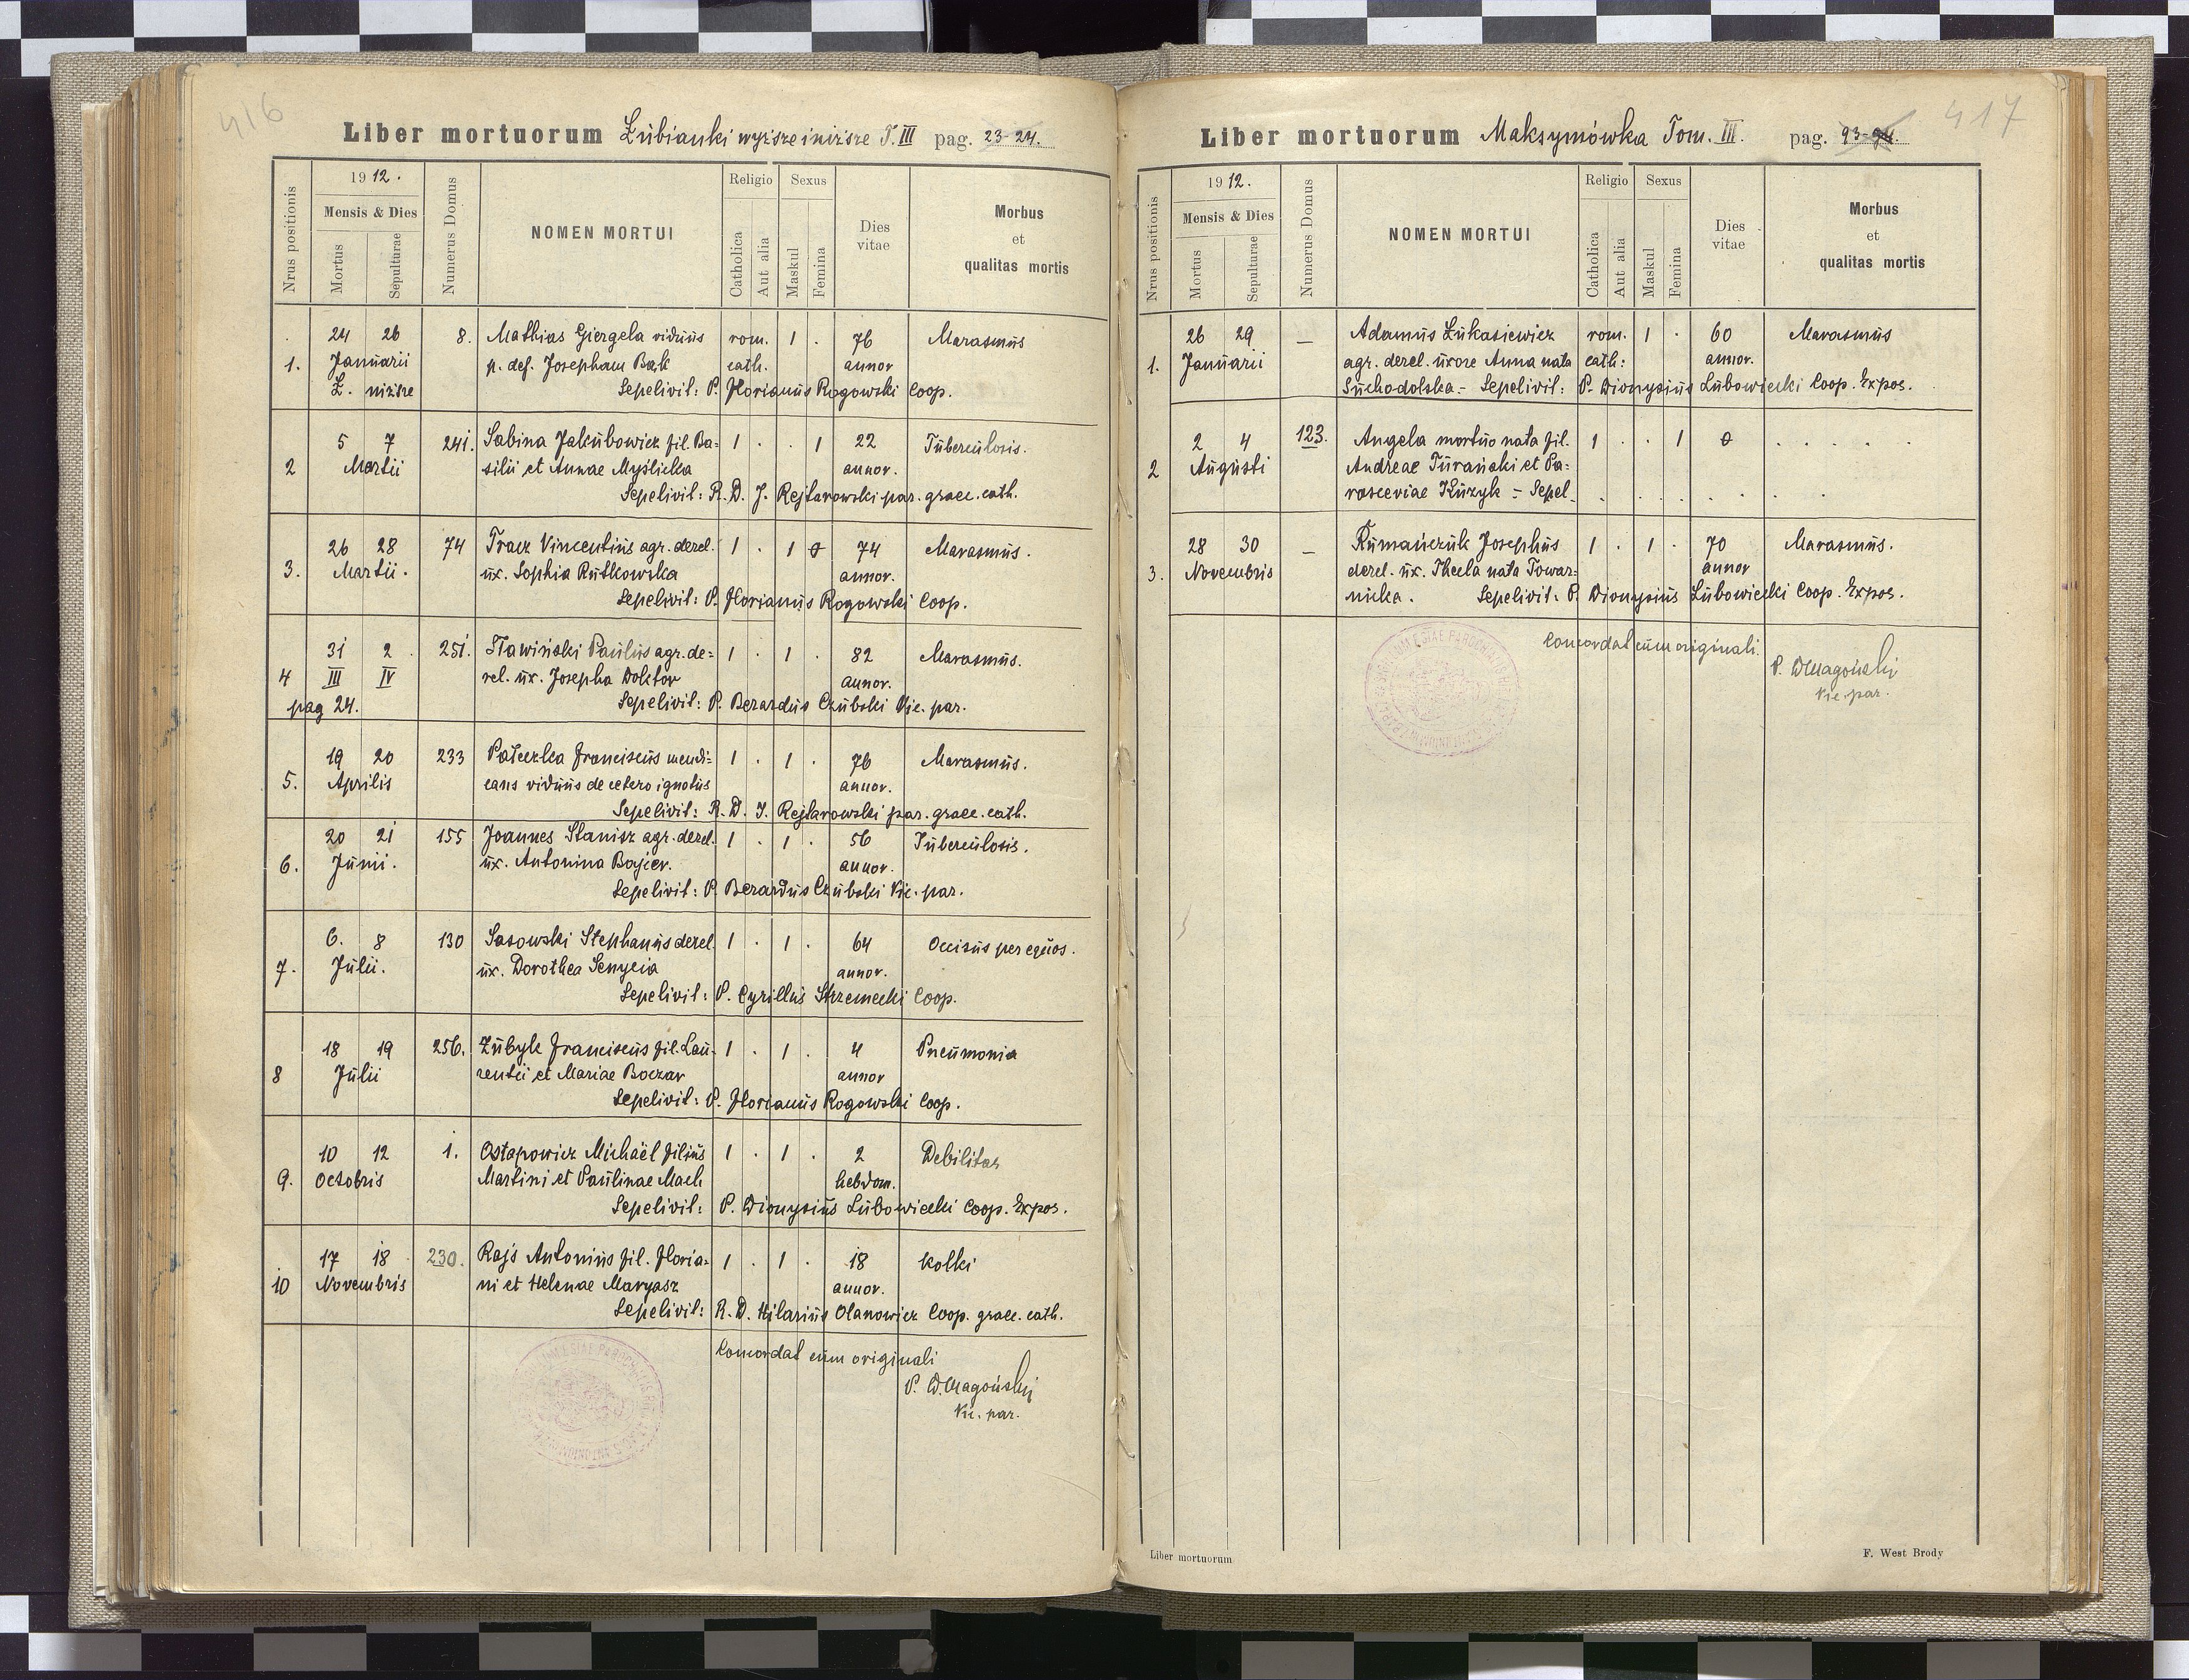 416
Liber mortuorum Łubianki wyższe i niższe T. III pag. 23-24.
Nrus positionis
1912.
Mensis & Dies
Mortus
Sepulturae
Numerus Domus
NOMEN MORTUI
Religio
Catholica
Aut alia
Sexus
Maskul
Femina
Dies vitae
Morbus
et
qualitas mortis
24 26 8. Mathias Giergela viduus rom. 1 . 76 Marasmus
1. Januarii p. def. Josepham Bak cath. annor
Ł. niższe Sepelivit: P. Florianus Rogowski Coop.
5 7 241. Sabina Jakubowicz fil. Ba= 1 . . 1 22 Tuberculosis.
2 Martii silii et Annae Myślicka annor.
Sepelivit: R. D. J. Rejtarowski par. graec. cath.
26 28 74 Tracz Vincentius agr. derel. 1 . 1 0 74 Marasmus.
3. Martii. ux. Sophia Rutkowska annor.
Sepelivit: P. Florianus Rogowski Coop.
31 2 251. Sławiński Paulus agr. de= 1 . 1 . 82 Marasmus.
4 III IV rel. ux. Josepha Doktor annor.
pag 24. Sepelivit: P. Berardus Czubski Vic. par.
19 20 233 Pałeczka Franciscus mendi= 1 . 1 . 76 Marasmus.
5. Aprilis cans viduus de cetero ignotus annor.
Sepelivit: R. D. J. Rejtarowski par. graec. cath.
20 21 155 Joannes Stanisz agr. derel. 1 . 1 . 56 Tuberculosis.
6. Junii. ux. Antonina Bojier. annor.
Sepelivit: P. Berardus Czubski Vic. par.
6. 8 130 Sasowski Stephanus derel. 1 . 1 . 64 Occisus per equos.
7. Julii. ux. Dorothea Senycia annor.
Sepelivit: P. Cyrillus Strzemecki Coop.
18 19 256. Zubyk Franciscus fil. Lau- 1 . 1 . 4 Pneumonia
8 Julii rentii et Mariae Boczar annor
Sepelivit: P. Florianus Rogowski Coop.
10 12 1. Ostapowicz Michaël filius 1 . 1 . 2 Debilitas
9. Octobris Martini et Paulinae Mach hebdom.
Sepelivit: P. Dionysius Lubowiecki Coop. Expos.
17 18 230. Rajs Antonius fil. Floria= 1 . 1 . 18 Kolki
10 Novembris ni et Helenae Maryasz annor.
Sepelivit: R. D. Hilarius Olanowicz Coop. graec. cath.
Concordat cum originali
P. D. Magoński
Vic. par.
417
Liber mortuorum Maksymówka Tom. III. pag. 93-94.
Nrus positionis
1912.
Mensis & Dies
Mortus
Sepulturae
Numerus Domus
NOMEN MORTUI
Religio
Catholica
Aut alia
Sexus
Maskul
Femina
Dies vitae
Morbus
et
qualitas mortis
26 29 — Adamus Łukasiewicz rom. 1 . 60 Marasmus
1. Januarii agr. derel. uxore Anna nata cath: annor.
Suchodolska - Sepelivit: P. Dionysius Lubowiecki Coop. Expos.
2 4 123. Angela mortuo nata fil. 1 . . 1 0 . . . . .
2 Augusti Andreae Turański et Pa=
rasceviae Kuzyk - Sepel. . . . . . . .
28 30 — Rumańczuk Josephus 1 . 1 . 70 Marasmus.
3. Novembris derel. ux. Thecla nata Towar= annor
nicka. Sepelivit: P. Dionysius Lubowiecki Coop. Expos.
Concordat cum originali.
P. D. Magoński
Vic. par.
Liber mortuorum
F. West Brody